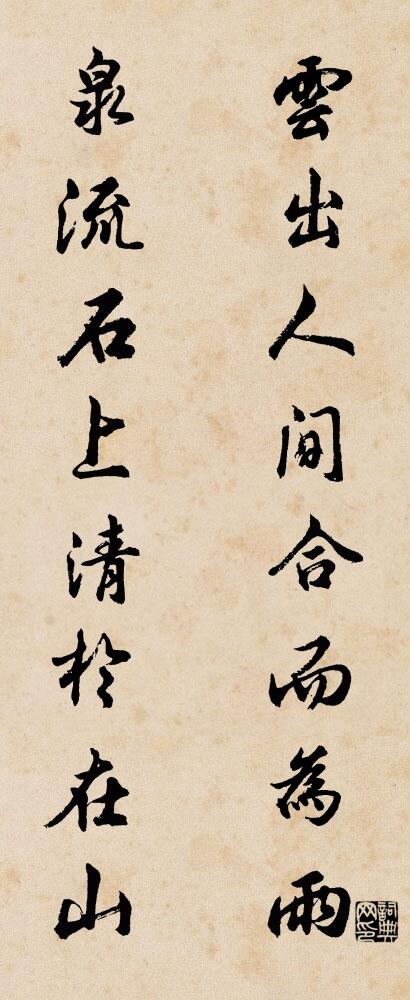 雲出人間合而為雨
泉流石上清於在山
詞典网印